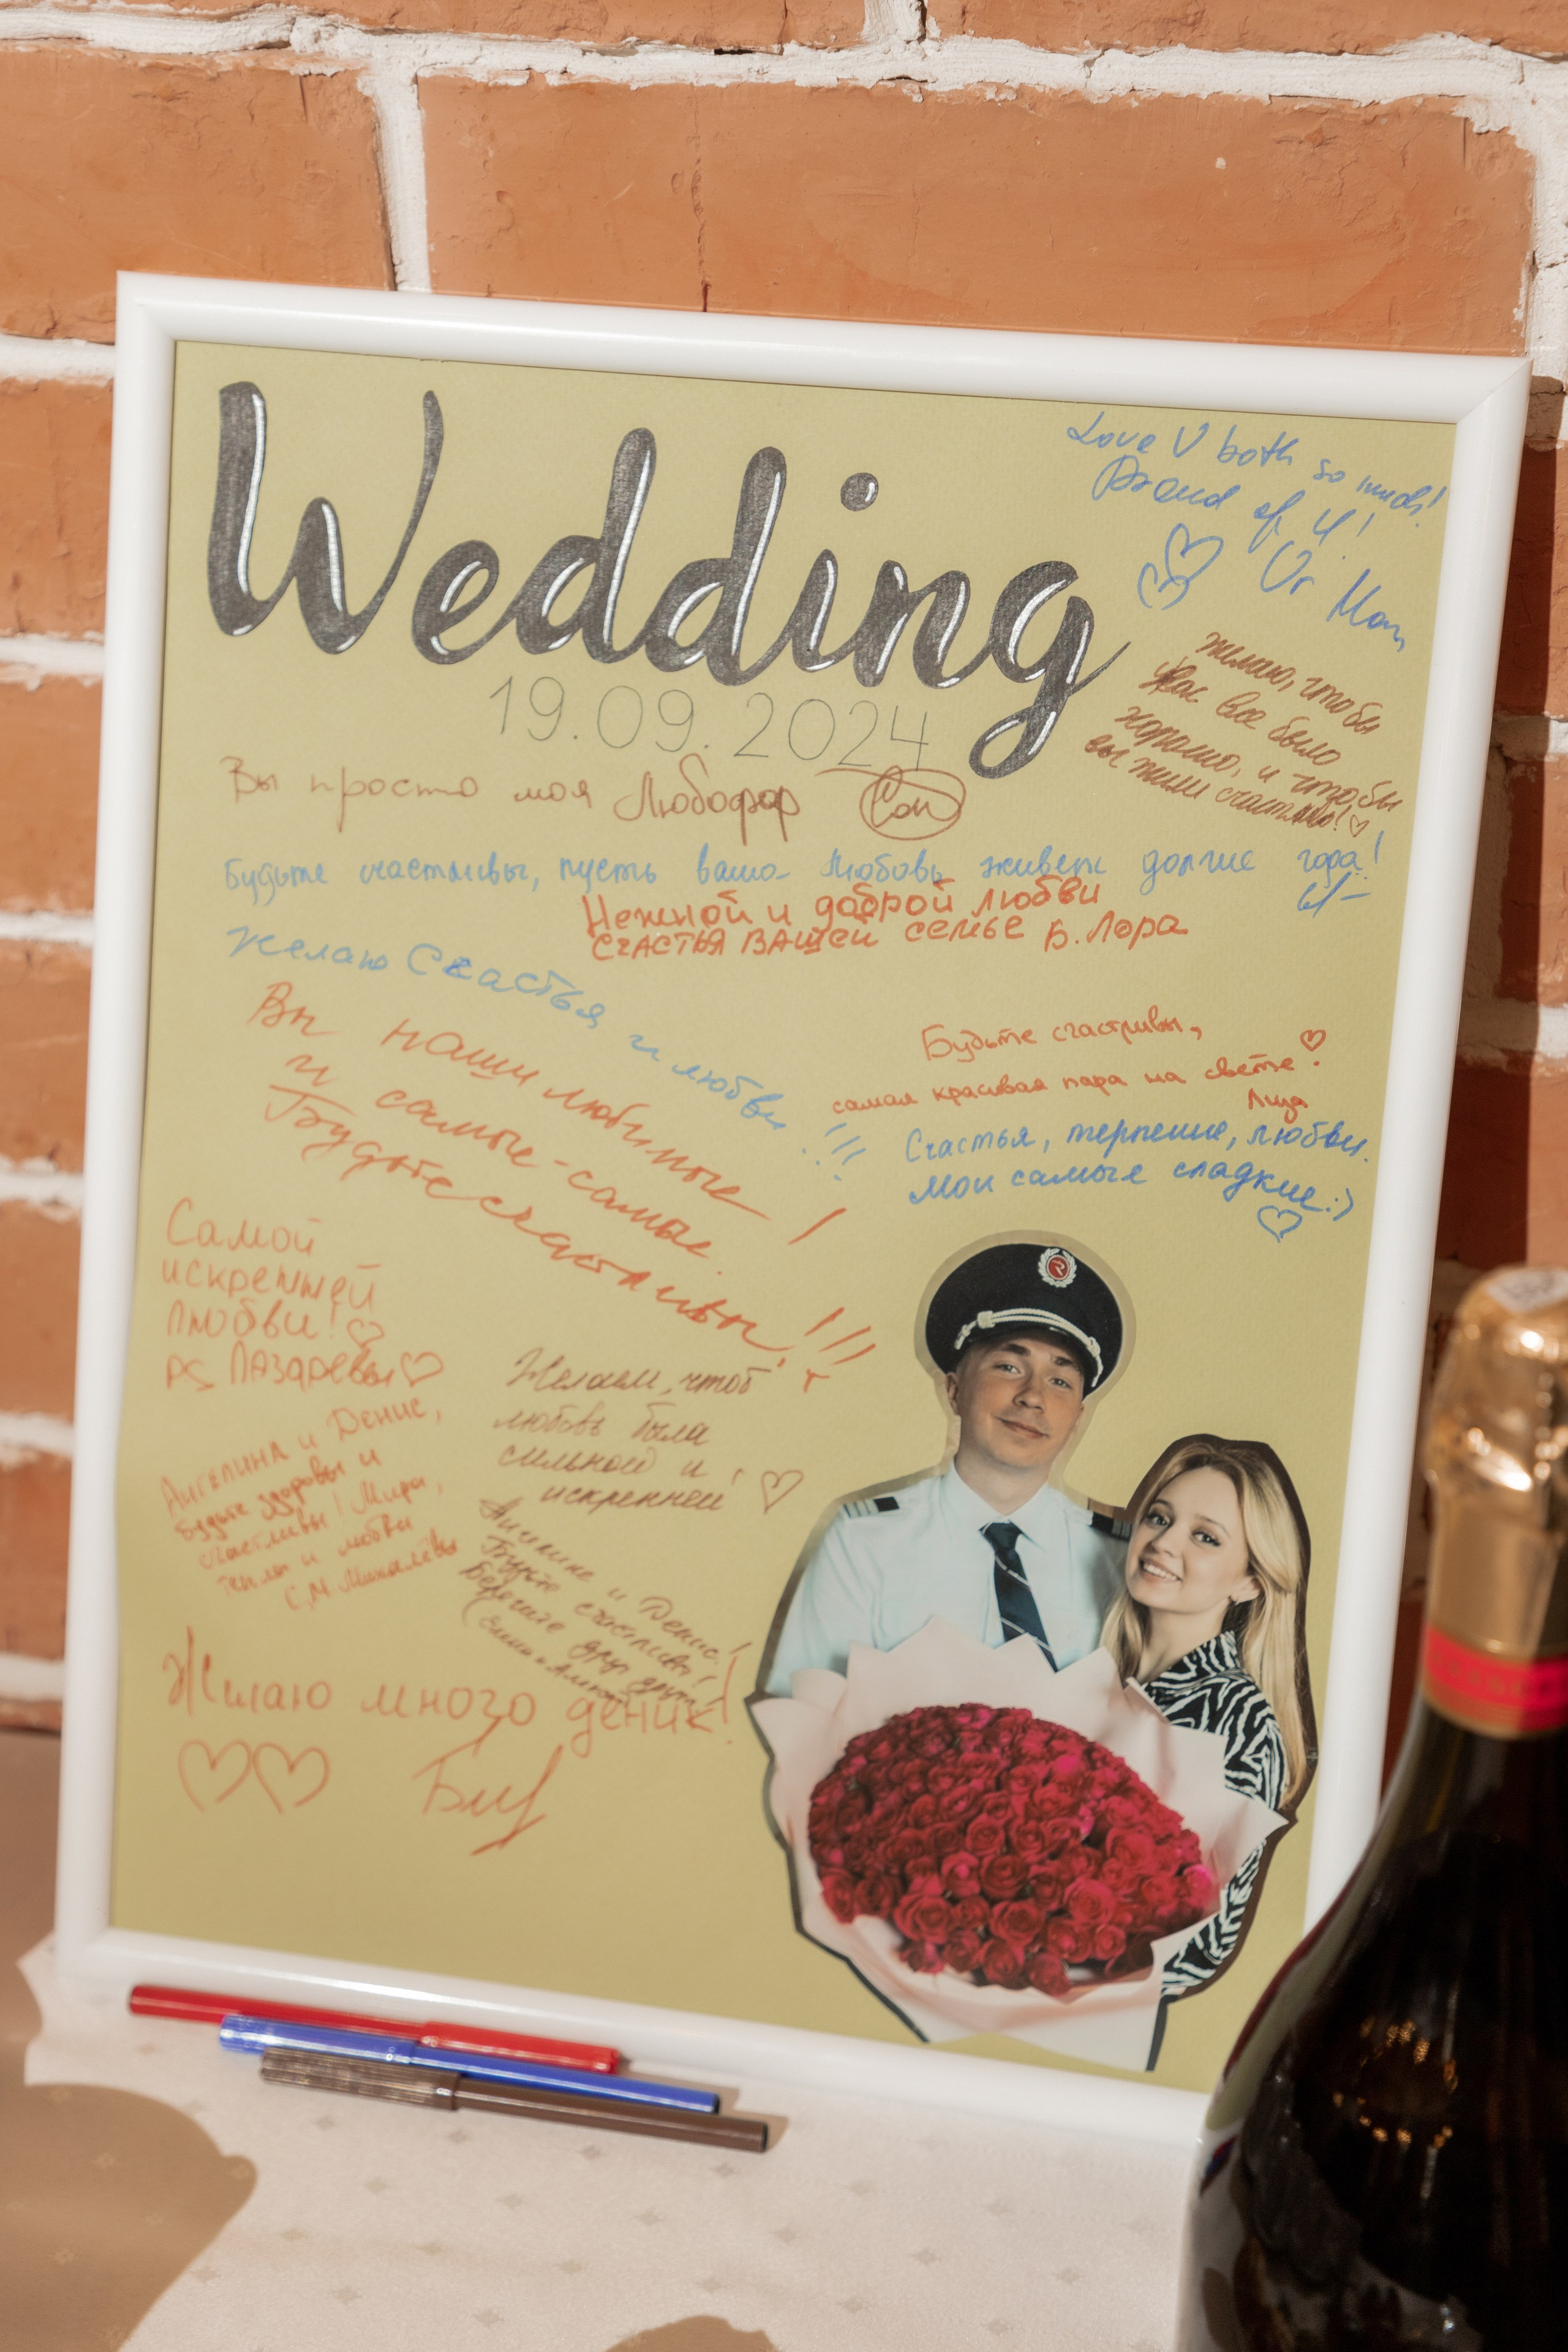 Wedding
19.09.2024
Love U both so much!
Proud of U!
Ur Mom
желаю, чтобы
у вас все было
хорошо, и чтобы
вы жили счастливо!
Вы просто моя Любофф
Будьте счастливы, пусть ваша любовь живет долгие года!
Нежной и доброй любви
Счастья вашей семье Б. Лора
Желаю Счастья и любви!!!
Вы наши любимые
и самые-самые!
Будьте счастливы!!!
Будьте счастливы,
самая красивая пара на свете!
Лиза
Счастья, терпение, любви.
Мои самые сладкие:)
Самой
искренней
Любви!
PS Лазаревы
Желаем, чтоб
любовь была
сильной и
искренней
Ангелина и Денис,
будьте здоровы и
счастливы! Мира,
тепла и любви
С,М Михалёвы
и Денис!
Будьте счастливы!
Берегите друг друга!
Желаю много деник!